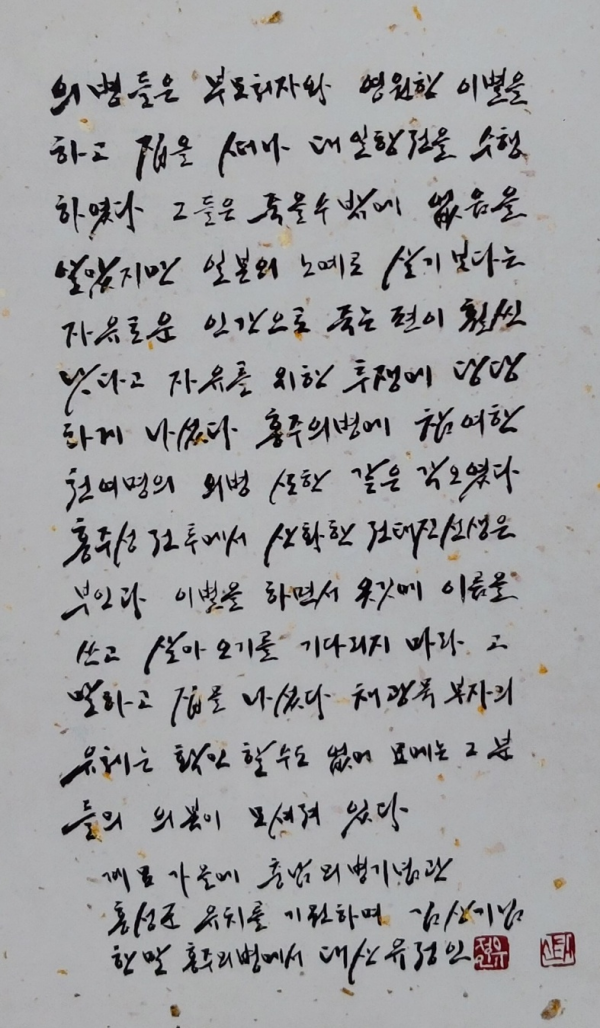 의병들은 부모처자와 영원한 이별을
하고 집을 떠나 대일항전을 수행
하였다 그들은 죽을수 밖에 없음을
알았지만 일본의 노예로 살기 보다는
자유로운 인간으로 죽는 편이 훨씬
낫다고 자유를 위한 투쟁에 당당
하게 나섰다 홍주의병에 참여한
천여명의 의병 또한 같은 각오였다
홍주성 전투에서 산화한 전태진선생은
부인과 이별을 하면서 옷깃에 이름을
쓰고 살아 오기를 기다리지 마라 고
말하고 집을 나섰다 채광묵 부자의
유체는 확인 할수도 없어 묘에는 그 분
들의 의복이 모셔져 있다
계묘 가을에 충남의병기념관
홍성군 유치를 기원하며 김상기님
한말 홍주의병에서 대산 유정인